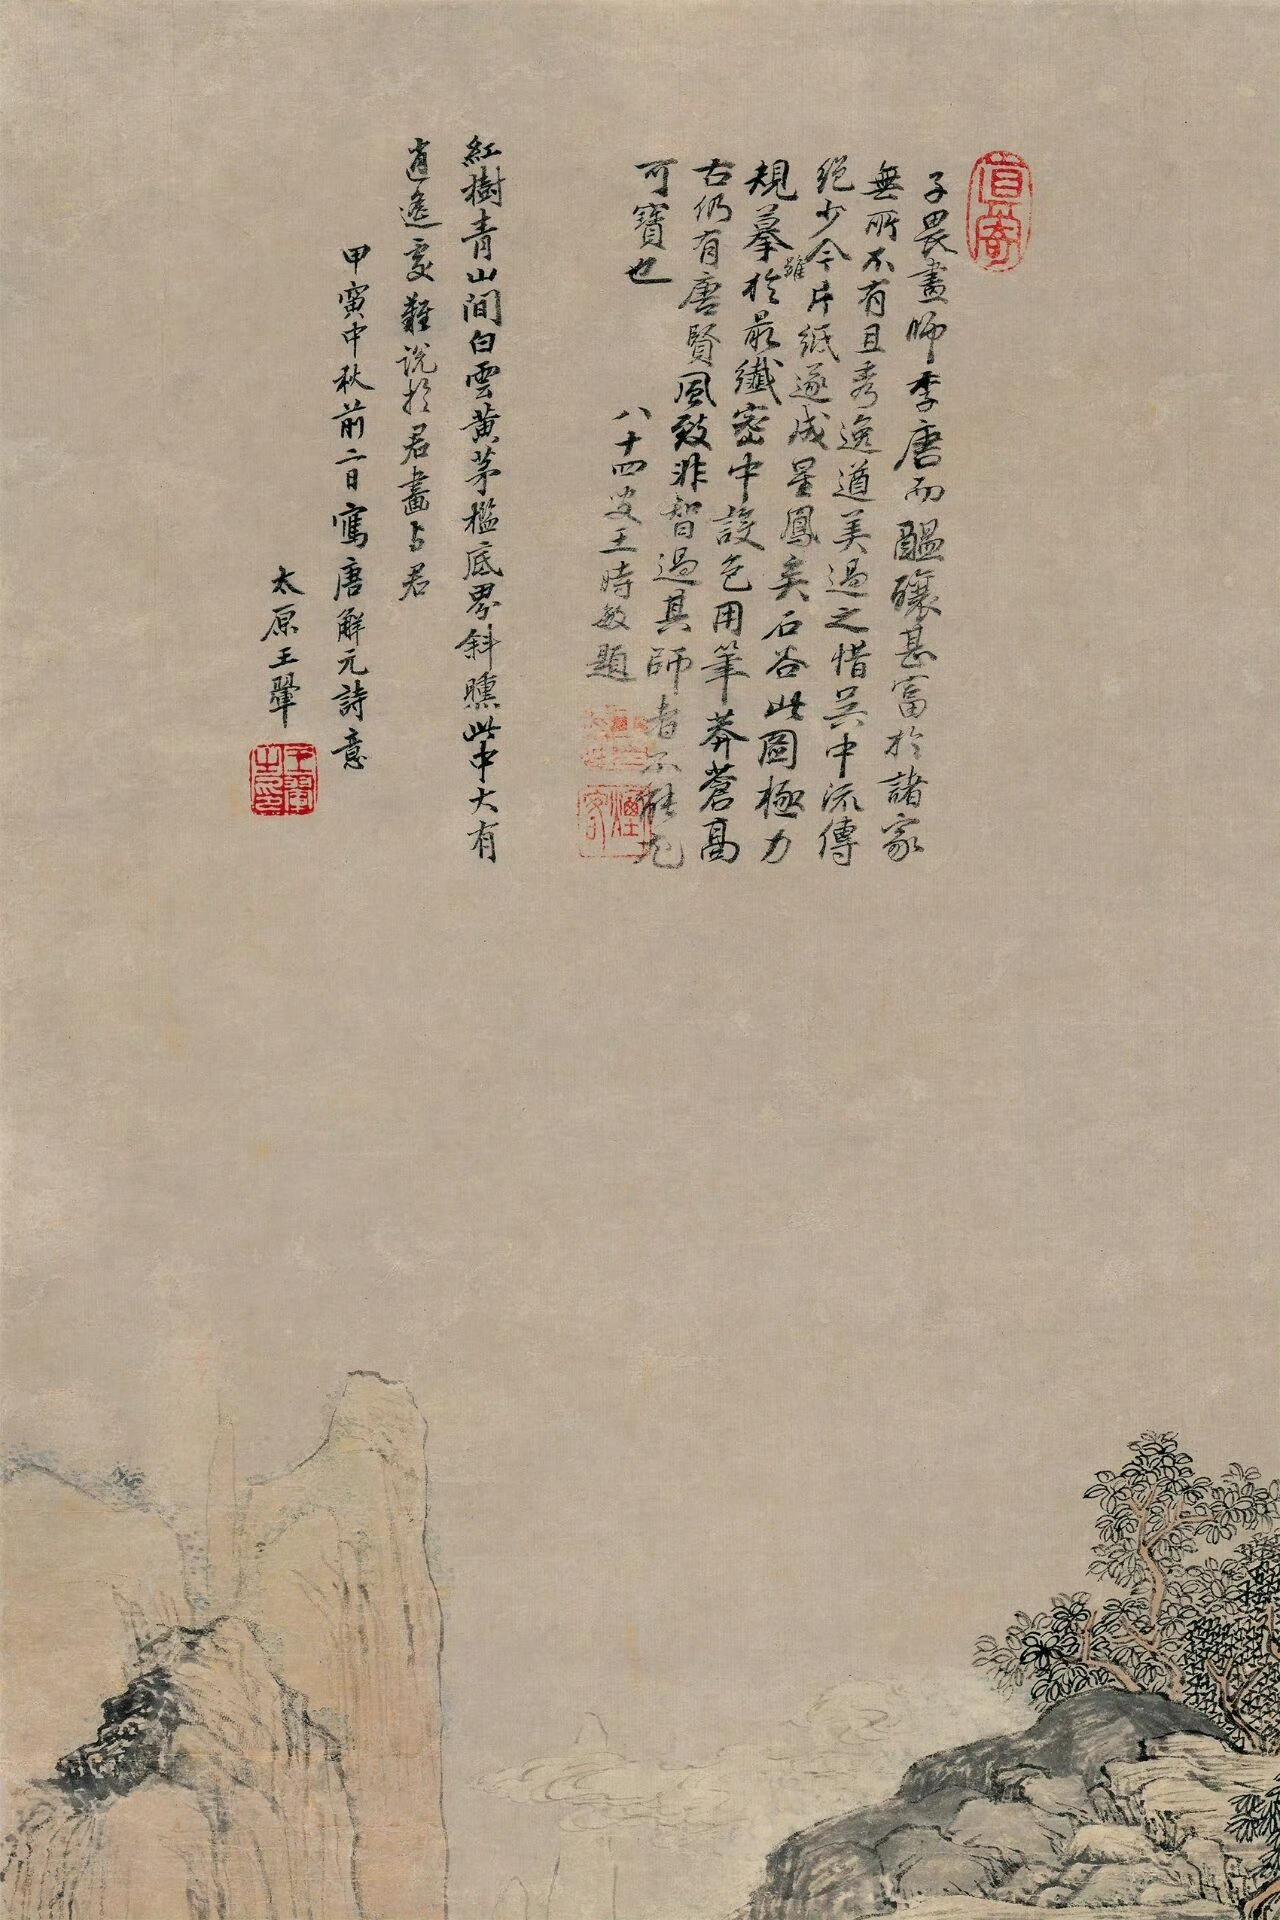 子畏畫師李唐而醞釀甚富於諸家
無所不有且秀逸遒美過之惜吳中流傳
絕少今雖片紙遂成星鳳矣石谷此圖極力
規摹於最纖密中設色用筆莽蒼高
古仍有唐賢風致非智過其師者不能也
可寶也
八十四叟王時敏題
紅樹青山間白雲黃茅檻底界斜曛此中大有
逍遙處難說於君畫與君
甲寅中秋前二日寫唐解元詩意
太原王翬